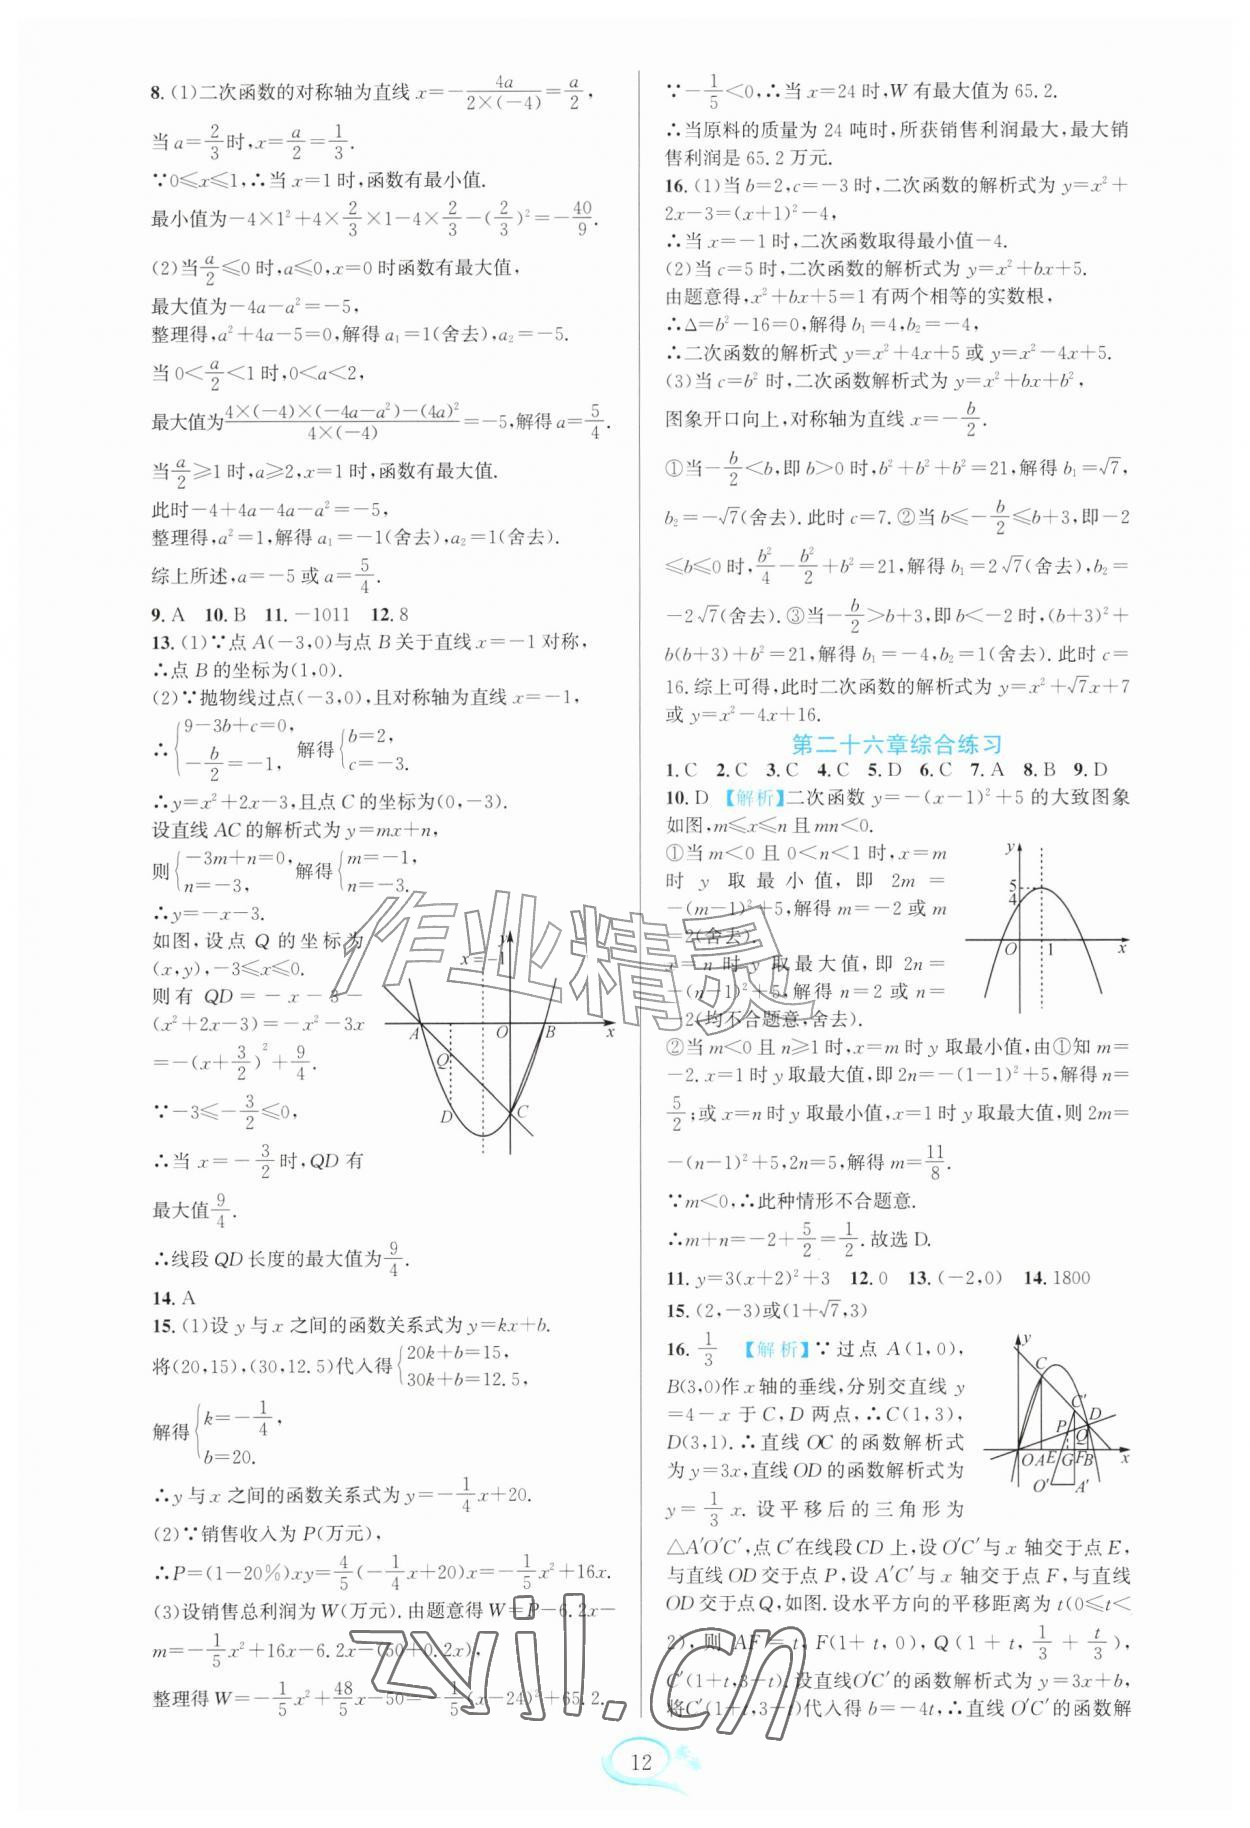 8. (1)二次函数的对称轴为直线 x=-4a/(2×(-4))=a/2,
当 a=2/3时,x=a/2=1/3.
∵0≤x≤1,∴当 x=1 时,函数有最小值.
最小值为-4×1²+4×2/3×1-4×2/3-(2/3)²=-40/9.
(2)当a/2≤0 时,a≤0,x=0时函数有最大值,
最大值为-4a-a²=-5,
整理得,a²+4a-5=0,解得 a₁=1(舍去),a₂=-5.
当 0<a/2<1 时,0<a<2,
最大值为(4×(-4)×(-4a-a²)-(4a)²)/(4×(-4))=-5,解得 a=5/4.
当a/2≥1 时,a≥2,x=1 时,函数有最大值.
此时-4+4a-4a-a²=-5,
整理得,a²=1,解得 a₁=-1(舍去),a₂=1(舍去).
综上所述,a=-5 或 a=5/4.
9. A 10. B 11. -1011 12. 8
13. (1)∵点 A(-3,0)与点 B 关于直线 x=-1 对称,
∴点 B 的坐标为(1,0).
(2)∵抛物线过点(-3,0),且对称轴为直线 x=-1,
∴{9-3b+c=0, -b/2=-1, 解得{b=2, c=-3.
∴y=x²+2x-3,且点 C 的坐标为(0,-3).
设直线 AC 的解析式为 y=mx+n,
则{-3m+n=0, n=-3, 解得{m=-1, n=-3.
∴y=-x-3.
如图,设点 Q 的坐标为
(x,y),-3≤x≤0.
则有 QD=-x-3-
(x²+2x-3)=-x²-3x
=-(x+3/2)²+9/4.
∵-3≤-3/2≤0,
∴当 x=-3/2时,QD 有
最大值9/4.
y x=-1 1 A O B x Q D C
∴线段 QD 长度的最大值为9/4.
14. A
15. (1)设 y 与 x 之间的函数关系式为 y=kx+b.
将(20,15),(30,12.5)代入得{20k+b=15, 30k+b=12.5,
解得{k=-1/4, b=20.
∴y 与 x 之间的函数关系式为 y=-1/4x+20.
(2)∵销售收入为 P(万元),
∴P=(1-20%)xy=4/5(-1/4x+20)x=-1/5x²+16x.
(3)设销售总利润为 W(万元). 由题意得 W=P-6.2x-
m=-1/5x²+16x-6.2x-(50+0.2x),
整理得 W=-1/5x²+48/5x-50=-1/5(x-24)²+65.2.
∵-1/5<0,∴当 x=24 时,W 有最大值为 65.2.
∴当原料的质量为 24 吨时,所获销售利润最大,最大销
售利润是 65.2 万元.
16. (1)当 b=2,c=-3 时,二次函数的解析式为 y=x²+
2x-3=(x+1)²-4,
∴当 x=-1 时,二次函数取得最小值-4.
(2)当 c=5 时,二次函数的解析式为 y=x²+bx+5.
由题意得,x²+bx+5=1 有两个相等的实数根,
∴Δ=b²-16=0,解得 b₁=4,b₂=-4,
∴二次函数的解析式 y=x²+4x+5 或 y=x²-4x+5.
(3)当 c=b² 时,二次函数解析式为 y=x²+bx+b²,
图象开口向上,对称轴为直线 x=-b/2.
①当-b/2<b,即 b>0 时,b²+b²+b²=21,解得 b₁=√7,
b₂=-√7(舍去). 此时 c=7. ②当 b≤-b/2≤b+3,即-2
≤b≤0 时,b²/4-b²/2+b²=21,解得 b₁=2√7(舍去),b₂=
-2√7(舍去). ③当-b/2>b+3,即 b<-2 时,(b+3)²+
b(b+3)+b²=21,解得 b₁=-4,b₂=1(舍去). 此时 c=
16. 综上可得,此时二次函数的解析式为 y=x²+√7x+7
或 y=x²-4x+16.
第二十六章综合练习
1. C 2. C 3. C 4. C 5. D 6. C 7. A 8. B 9. D
10. D 【解析】二次函数 y=-(x-1)²+5 的大致图象
如图,m≤x≤n 且 mn<0.
①当 m<0 且 0<n<1 时,x=m
时 y 取最小值,即 2m=
-(m-1)²+5,解得 m=-2 或 m
=2(舍去).
x=n 时 y 取最大值,即 2n=
-(n-1)²+5,解得 n=2 或 n=
-2(均不合题意,舍去).
y 5 4 O 1 x
②当 m<0 且 n≥1 时,x=m 时 y 取最小值,由①知 m=
-2. x=1 时 y 取最大值,即 2n=-(1-1)²+5,解得 n=
5/2;或 x=n 时 y 取最小值,x=1 时 y 取最大值,则 2m=
-(n-1)²+5,2n=5,解得 m=11/8.
∵m<0,∴此种情形不合题意.
∴m+n=-2+5/2=1/2. 故选 D.
11. y=3(x+2)²+3 12. 0 13. (-2,0) 14. 1800
15. (2,-3)或(1+√7,3)
16. 1/3 【解析】∵过点 A(1,0),
B(3,0)作 x 轴的垂线,分别交直线 y
=4-x 于 C,D 两点,∴C(1,3),
D(3,1). ∴直线 OC 的函数解析式
为 y=3x,直线 OD 的函数解析式为
y=1/3x. 设平移后的三角形为
y C C′ D P Q O A E G F B x O′ A′
△A′O′C′,点 C′在线段 CD 上,设 O′C′与 x 轴交于点 E,
与直线 OD 交于点 P,设 A′C′与 x 轴交于点 F,与直线
OD 交于点 Q,如图. 设水平方向的平移距离为 t(0≤t<
2),则 AF=t,F(1+t,0),Q(1+t,1/3+t/3),
C′(1+t,3-t). 设直线O′C′的函数解析式为 y=3x+b,
将C′(1+t,3-t)代入得 b=-4t,∴直线 O′C′的函数解
作业精灵
zyjl.cn
12